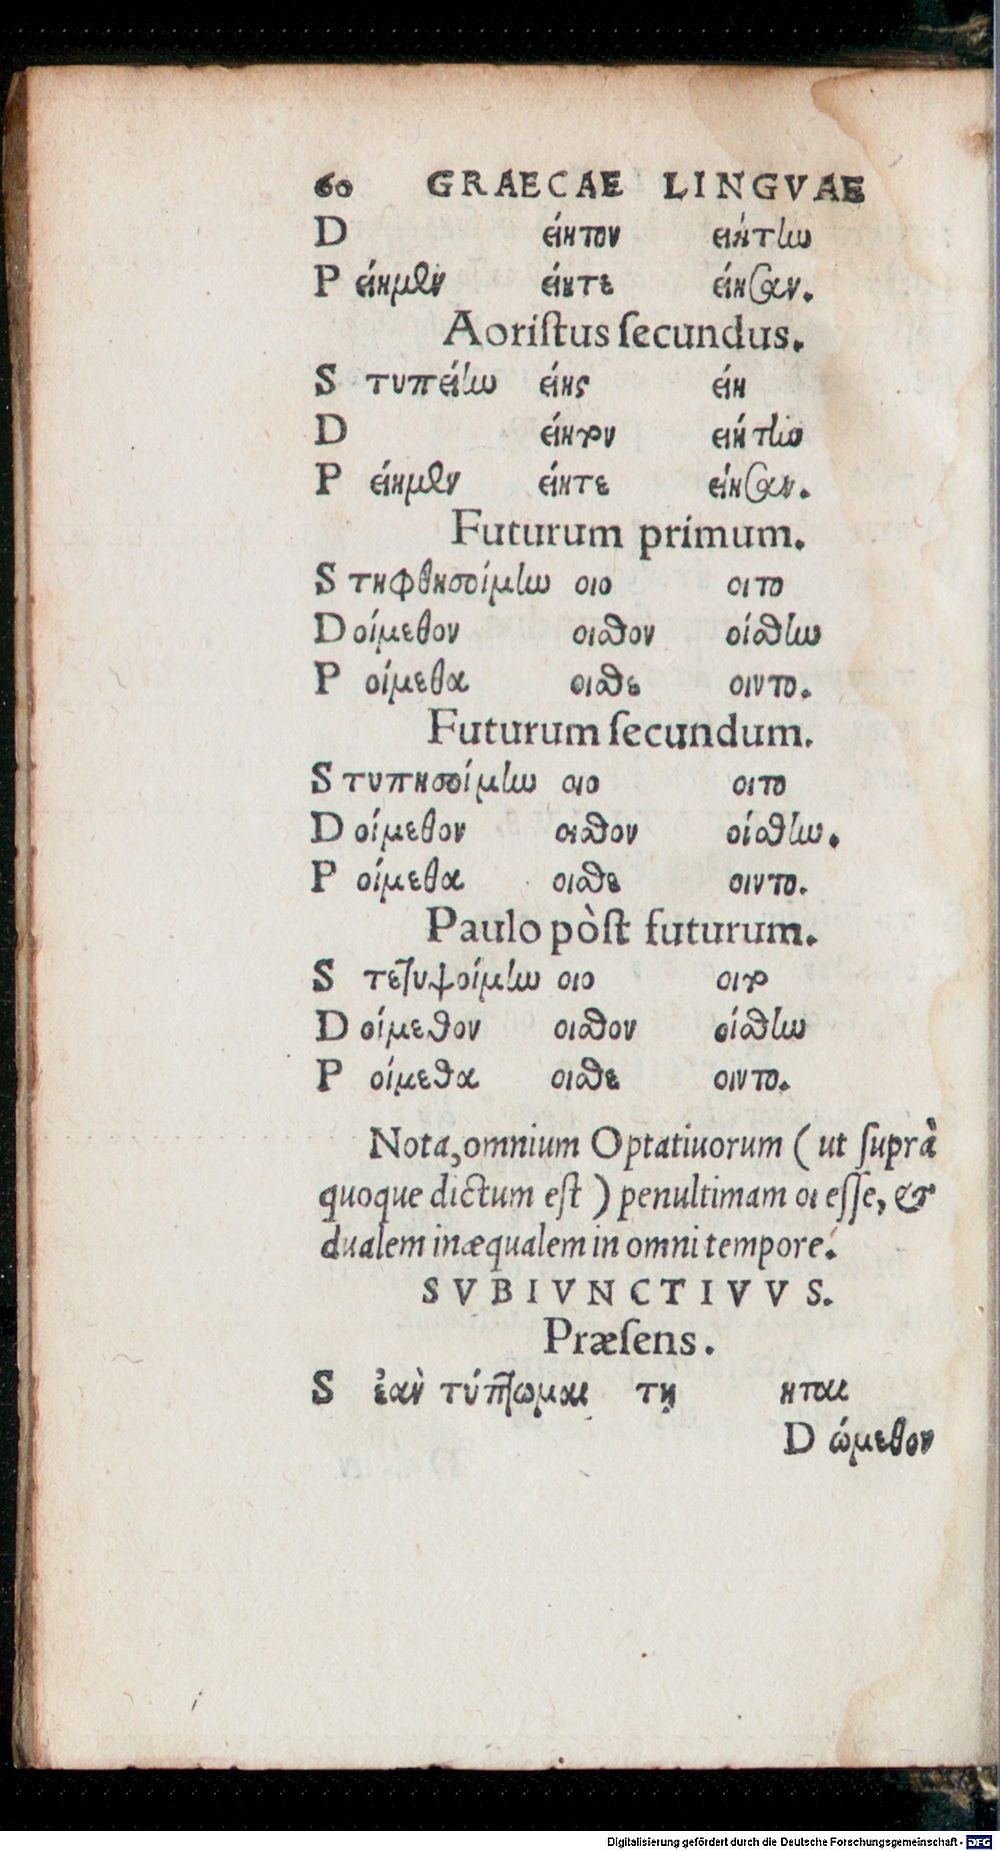 60 GRAECAE LINGVAE
D είητον ειήτην
P είημεν είητε είησαν.
Aoriſtus ſecundus.
S τυπείην είης είη
D είητον ειήτην
P είημεν είητε είησαν.
Futurum primum.
S τηφθησοίμην οιο οιτο
D οίμεθον οισθον οίσθην
P οίμεθα οισθε οιντο.
Futurum ſecundum.
S τυπησοίμην οιο οιτο
D οίμεθον οισθον οίσθην.
P οίμεθα οισθε οιντο.
Paulo pòſt futurum.
S τετυψοίμην οιο οιτο
D οίμεθον οισθον οίσθην
P οίμεθα οισθε οιντο.
Nota, omnium Optatiuorum (ut ſuprà
quoque dictum eſt) penultimam οι eſſe, &
dualem inæqualem in omni tempore.
SVBIVNCTIVVS.
Præſens.
S ἐὰν τύπτωμαι τῃ ηται
D ώμεθον
Digitalisierung gefördert durch die Deutsche Forschungsgemeinschaft - DFG